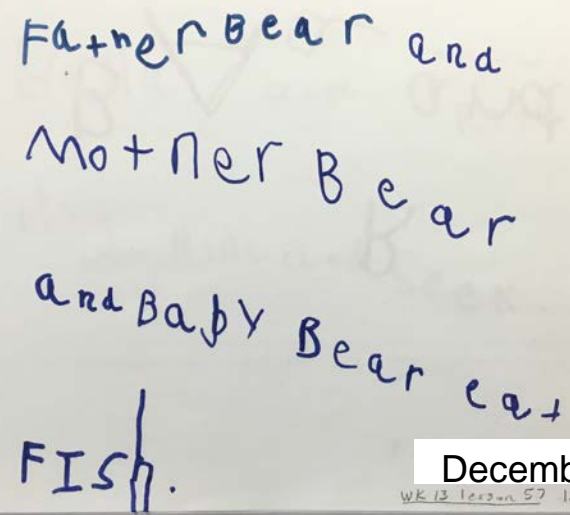 Father Bear and
Mother Bear
and Baby Bear eat
FISh.
Decemb
WK 13 lesson 57